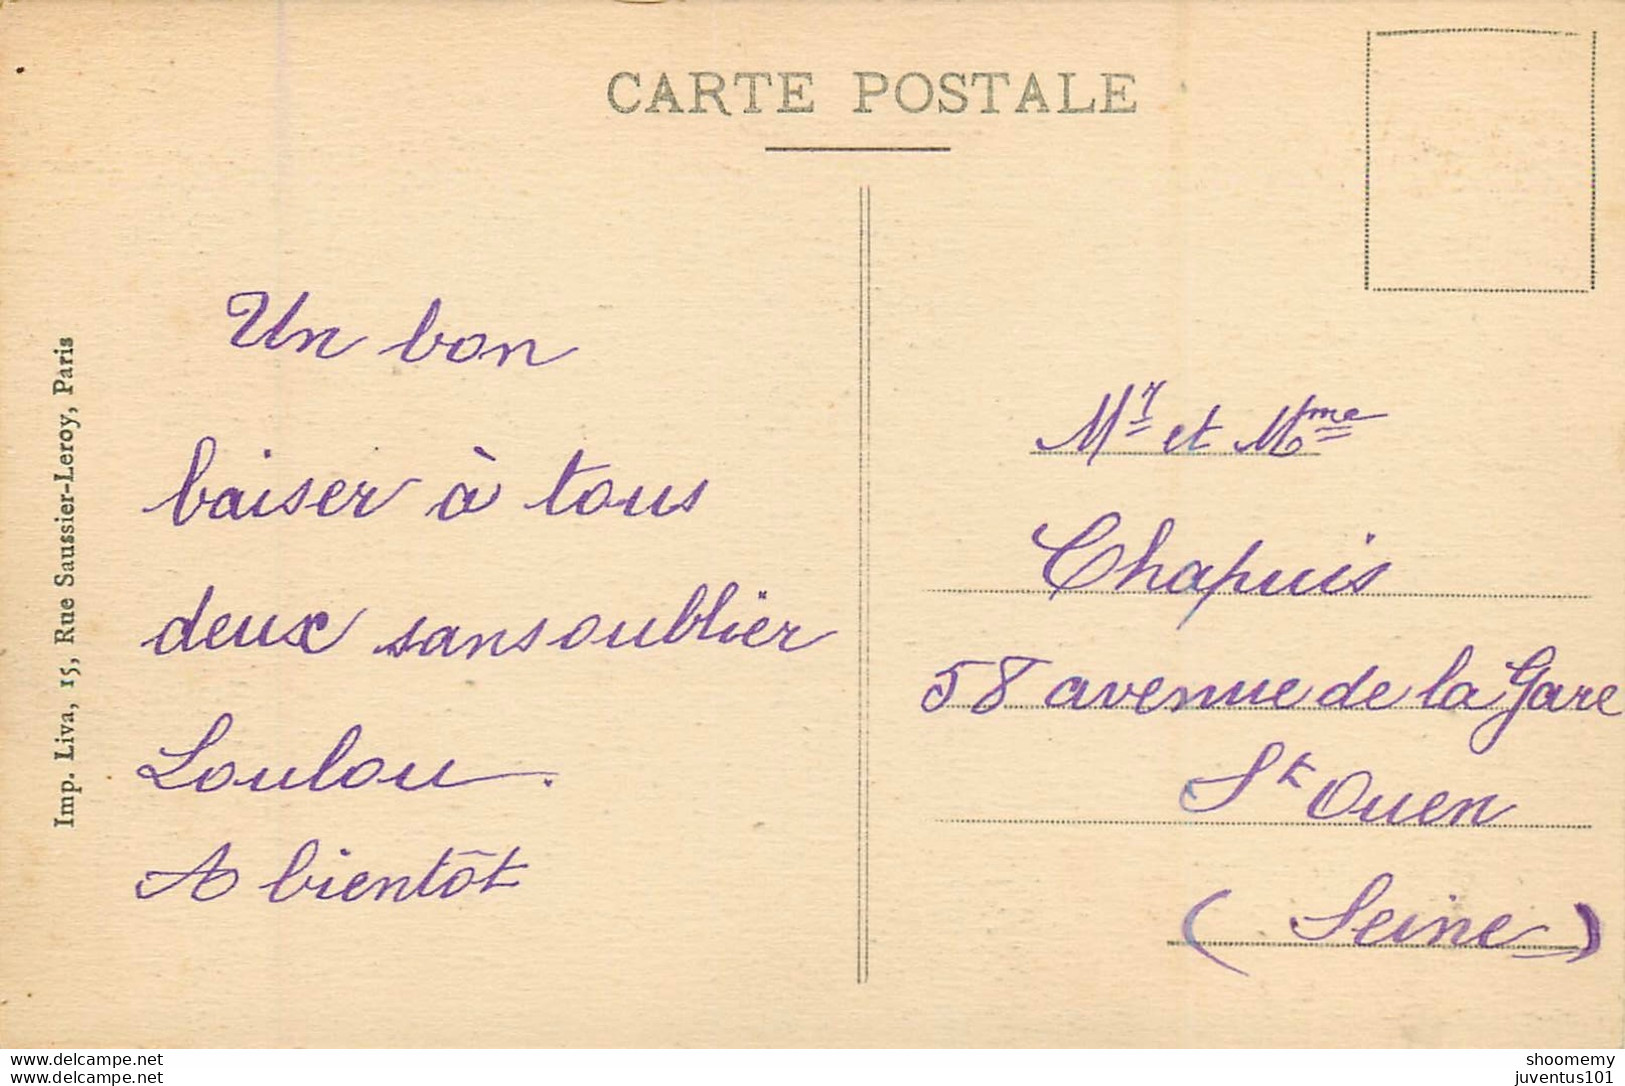 CARTE POSTALE
Imp. Liva, 15, Rue Saussier-Leroy, Paris
Un bon
baiser à tous
deux sans oublier
Loulou.
A bientôt
Mr et Mme
Chapuis
58 avenue de la Gare
St Ouen
(Seine)
www.delcampe.net
www.delcampe.net
shoomemy
juventus101